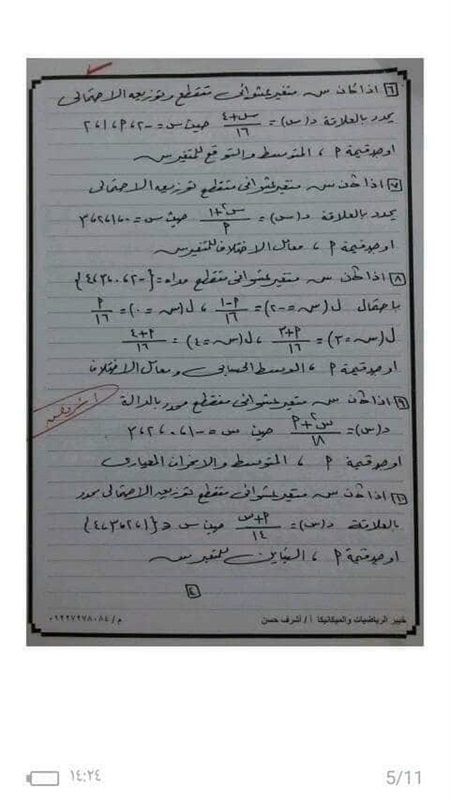 ٦ إذا كان س متغير عشوائى متقطع وتوزيعه الاحتمالى
يحدد بالعلاقة د(س) = (س+٤)/١٦ حيث س = -٢، ٢، ١، ٢
اوجد قيمة ٢، المتوسط والتوقع للمتغير س
٧ إذا كان س متغير عشوائى متقطع توزيعه الاحتمالى
يحدد بالعلاقة د(س) = (س٢+١)/٢ حيث س = ٠، ١، ٢، ٣
اوجد قيمة ٢، معامل الاختلاف للمتغير س
٨ إذا كان س متغير عشوائى متقطع مداه = {-٢، ٠، ٣، ٤}
باحتمال ل(س=-٢) = (٢-١)/١٦، ل(س=٠) = ٢/١٦
ل(س=٣) = (٢+٣)/١٦، ل(س=٤) = (٢+٤)/١٦
اوجد قيمة ٢، الوسط الحسابى ومعامل الاختلاف
٩ إذا كان س متغير عشوائى متقطع محدد بالدالة
د(س) = (س٢+٢)/١٨ حيث س = -١، ٠، ٢، ٣
اوجد قيمة ٢، المتوسط والانحراف المعيارى
١٠ إذا كان س متغير عشوائى متقطع توزيعه الاحتمالى يحدد
بالعلاقة د(س) = (٢+س)/١٤ حيث س ∈ {١، ٢، ٣، ٤}
اوجد قيمة ٢، التباين للمتغير س
٤
خبير الرياضيات والميكانيكا أ / أشرف حسن
م / ٠١٢٢٧٢٧٨٠٨٤
١٤:٢٤
5/11